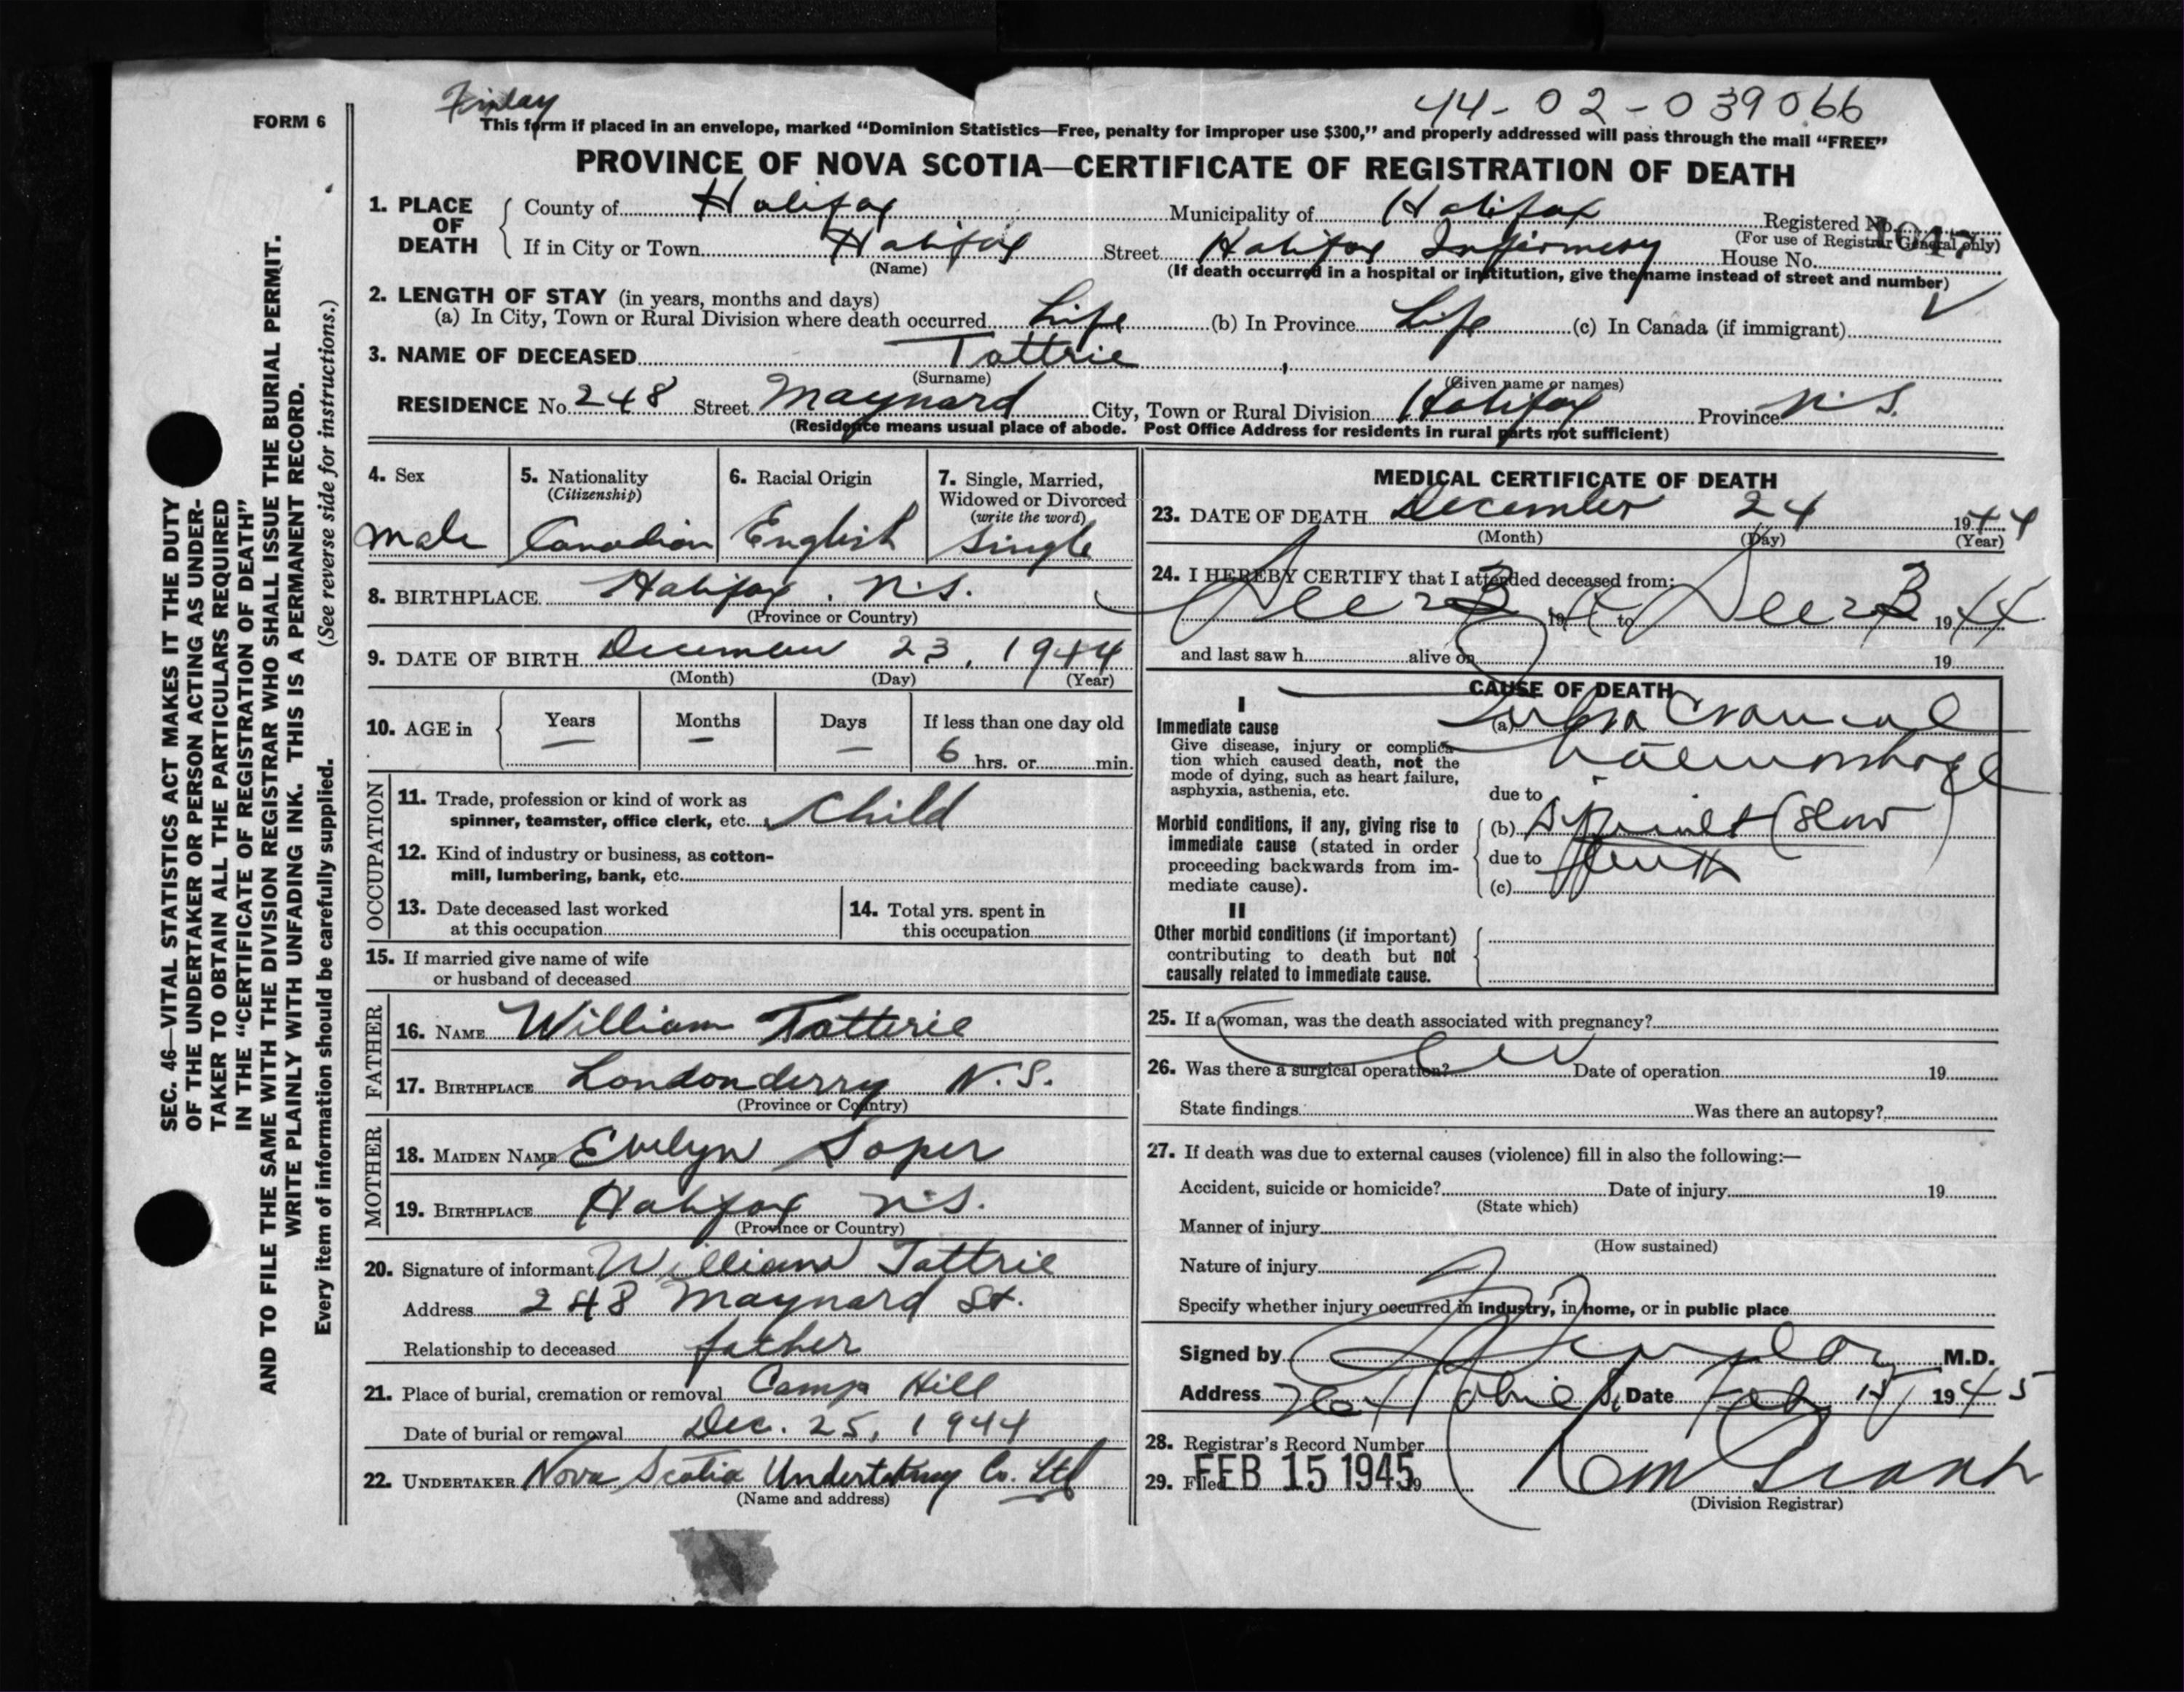 Finlay
44-02-039066
FORM 6
This form if placed in an envelope, marked “Dominion Statistics—Free, penalty for improper use $300,” and properly addressed will pass through the mail “FREE”
PROVINCE OF NOVA SCOTIA—CERTIFICATE OF REGISTRATION OF DEATH
1. PLACE OF DEATH
County of Halifax Municipality of Halifax Registered No. 1047
(For use of Registrar General only)
If in City or Town Halifax Street Halifax Infirmary House No.
(Name) (If death occurred in a hospital or institution, give the name instead of street and number)
2. LENGTH OF STAY (in years, months and days)
(a) In City, Town or Rural Division where death occurred Life (b) In Province Life (c) In Canada (if immigrant)
3. NAME OF DECEASED Tattrie ,
(Surname) (Given name or names)
RESIDENCE No. 248 Street Maynard City, Town or Rural Division Halifax Province N.S.
(Residence means usual place of abode. Post Office Address for residents in rural parts not sufficient)
4. Sex 5. Nationality (Citizenship) 6. Racial Origin 7. Single, Married, Widowed or Divorced (write the word)
male Canadian English Single
8. BIRTHPLACE Halifax. N.S.
(Province or Country)
9. DATE OF BIRTH December 23, 1944
(Month) (Day) (Year)
10. AGE in Years Months Days If less than one day old
— — — 6 hrs. or min.
OCCUPATION
11. Trade, profession or kind of work as
spinner, teamster, office clerk, etc. Child
12. Kind of industry or business, as cotton-
mill, lumbering, bank, etc.
13. Date deceased last worked
at this occupation
14. Total yrs. spent in
this occupation
15. If married give name of wife
or husband of deceased
FATHER
16. NAME William Tattrie
17. BIRTHPLACE Londonderry N.S.
(Province or Country)
MOTHER
18. MAIDEN NAME Evelyn Soper
19. BIRTHPLACE Halifax N.S.
(Province or Country)
20. Signature of informant William Tattrie
Address 248 Maynard St.
Relationship to deceased father
21. Place of burial, cremation or removal Camp Hill
Date of burial or removal Dec. 25, 1944
22. UNDERTAKER Nova Scotia Undertaking Co. Ltd
(Name and address)
MEDICAL CERTIFICATE OF DEATH
23. DATE OF DEATH December 24 1944
(Month) (Day) (Year)
24. I HEREBY CERTIFY that I attended deceased from:
Dec 23 1944 to Dec 23 1944
and last saw h alive on 19
CAUSE OF DEATH
I
Immediate cause
Give disease, injury or complica
tion which caused death, not the
mode of dying, such as heart failure,
asphyxia, asthenia, etc.
(a) Intra Cranial
haemorrhage
due to
Morbid conditions, if any, giving rise to
immediate cause (stated in order
proceeding backwards from im-
mediate cause).
(b) (Slow
due to
(c)
II
Other morbid conditions (if important)
contributing to death but not
causally related to immediate cause.
25. If a woman, was the death associated with pregnancy?
26. Was there a surgical operation? Date of operation 19
State findings Was there an autopsy?
27. If death was due to external causes (violence) fill in also the following:—
Accident, suicide or homicide? Date of injury 19
(State which)
Manner of injury
(How sustained)
Nature of injury
Specify whether injury occurred in industry, in home, or in public place
Signed by M.D.
Address Date Feb 15 1945
28. Registrar's Record Number
29. Filed FEB 15 1945 19
(Division Registrar)
SEC. 46—VITAL STATISTICS ACT MAKES IT THE DUTY
OF THE UNDERTAKER OR PERSON ACTING AS UNDER-
TAKER TO OBTAIN ALL THE PARTICULARS REQUIRED
IN THE “CERTIFICATE OF REGISTRATION OF DEATH”
AND TO FILE THE SAME WITH THE DIVISION REGISTRAR WHO SHALL ISSUE THE BURIAL PERMIT.
WRITE PLAINLY WITH UNFADING INK. THIS IS A PERMANENT RECORD.
Every item of information should be carefully supplied. (See reverse side for instructions.)